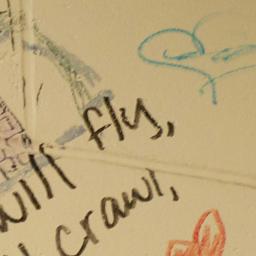 will fly,
crawl,